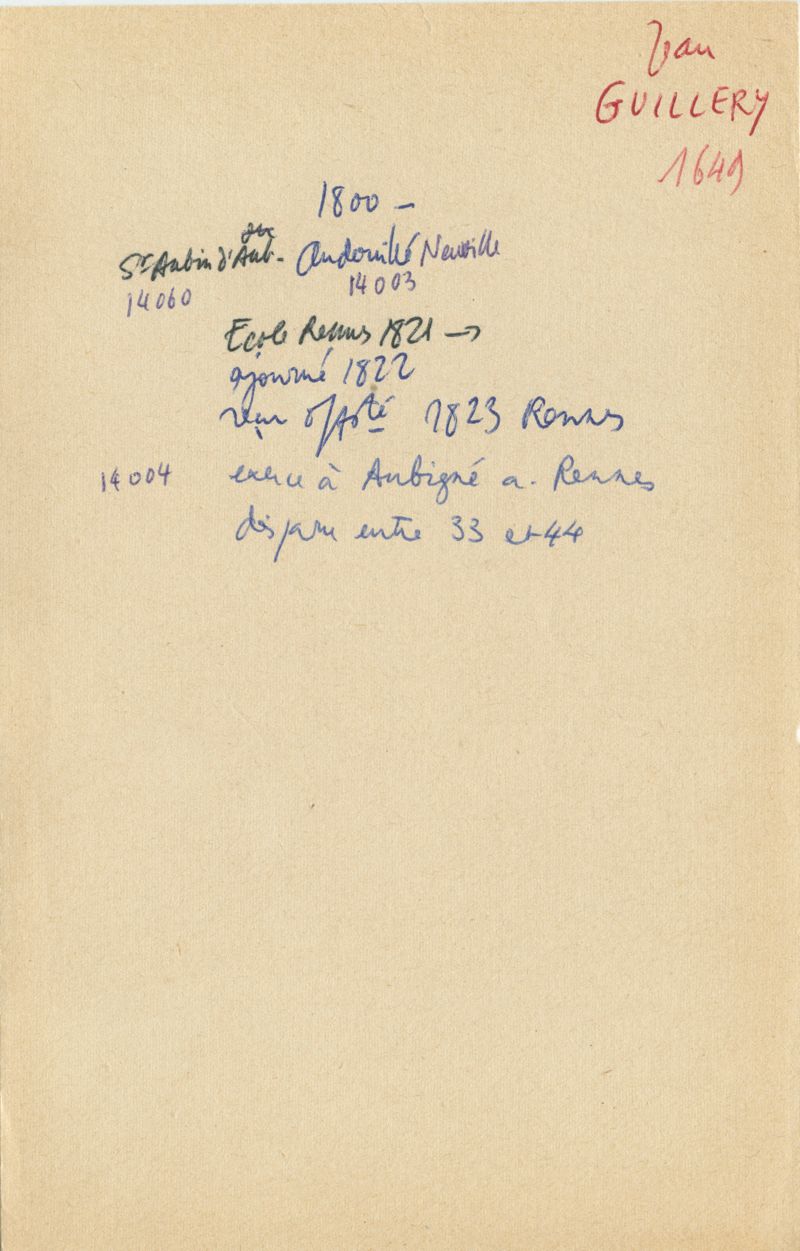 Jean
GUILLERY
1649
1800 -
St Aubin d'Aub. Andouillé Neuville
14060 14003
Ecole Rennes 1821 →
ajourné 1822
reçu 1823 Rennes
14004 exerce à Aubigné a. Rennes
disparu entre 33 et 44